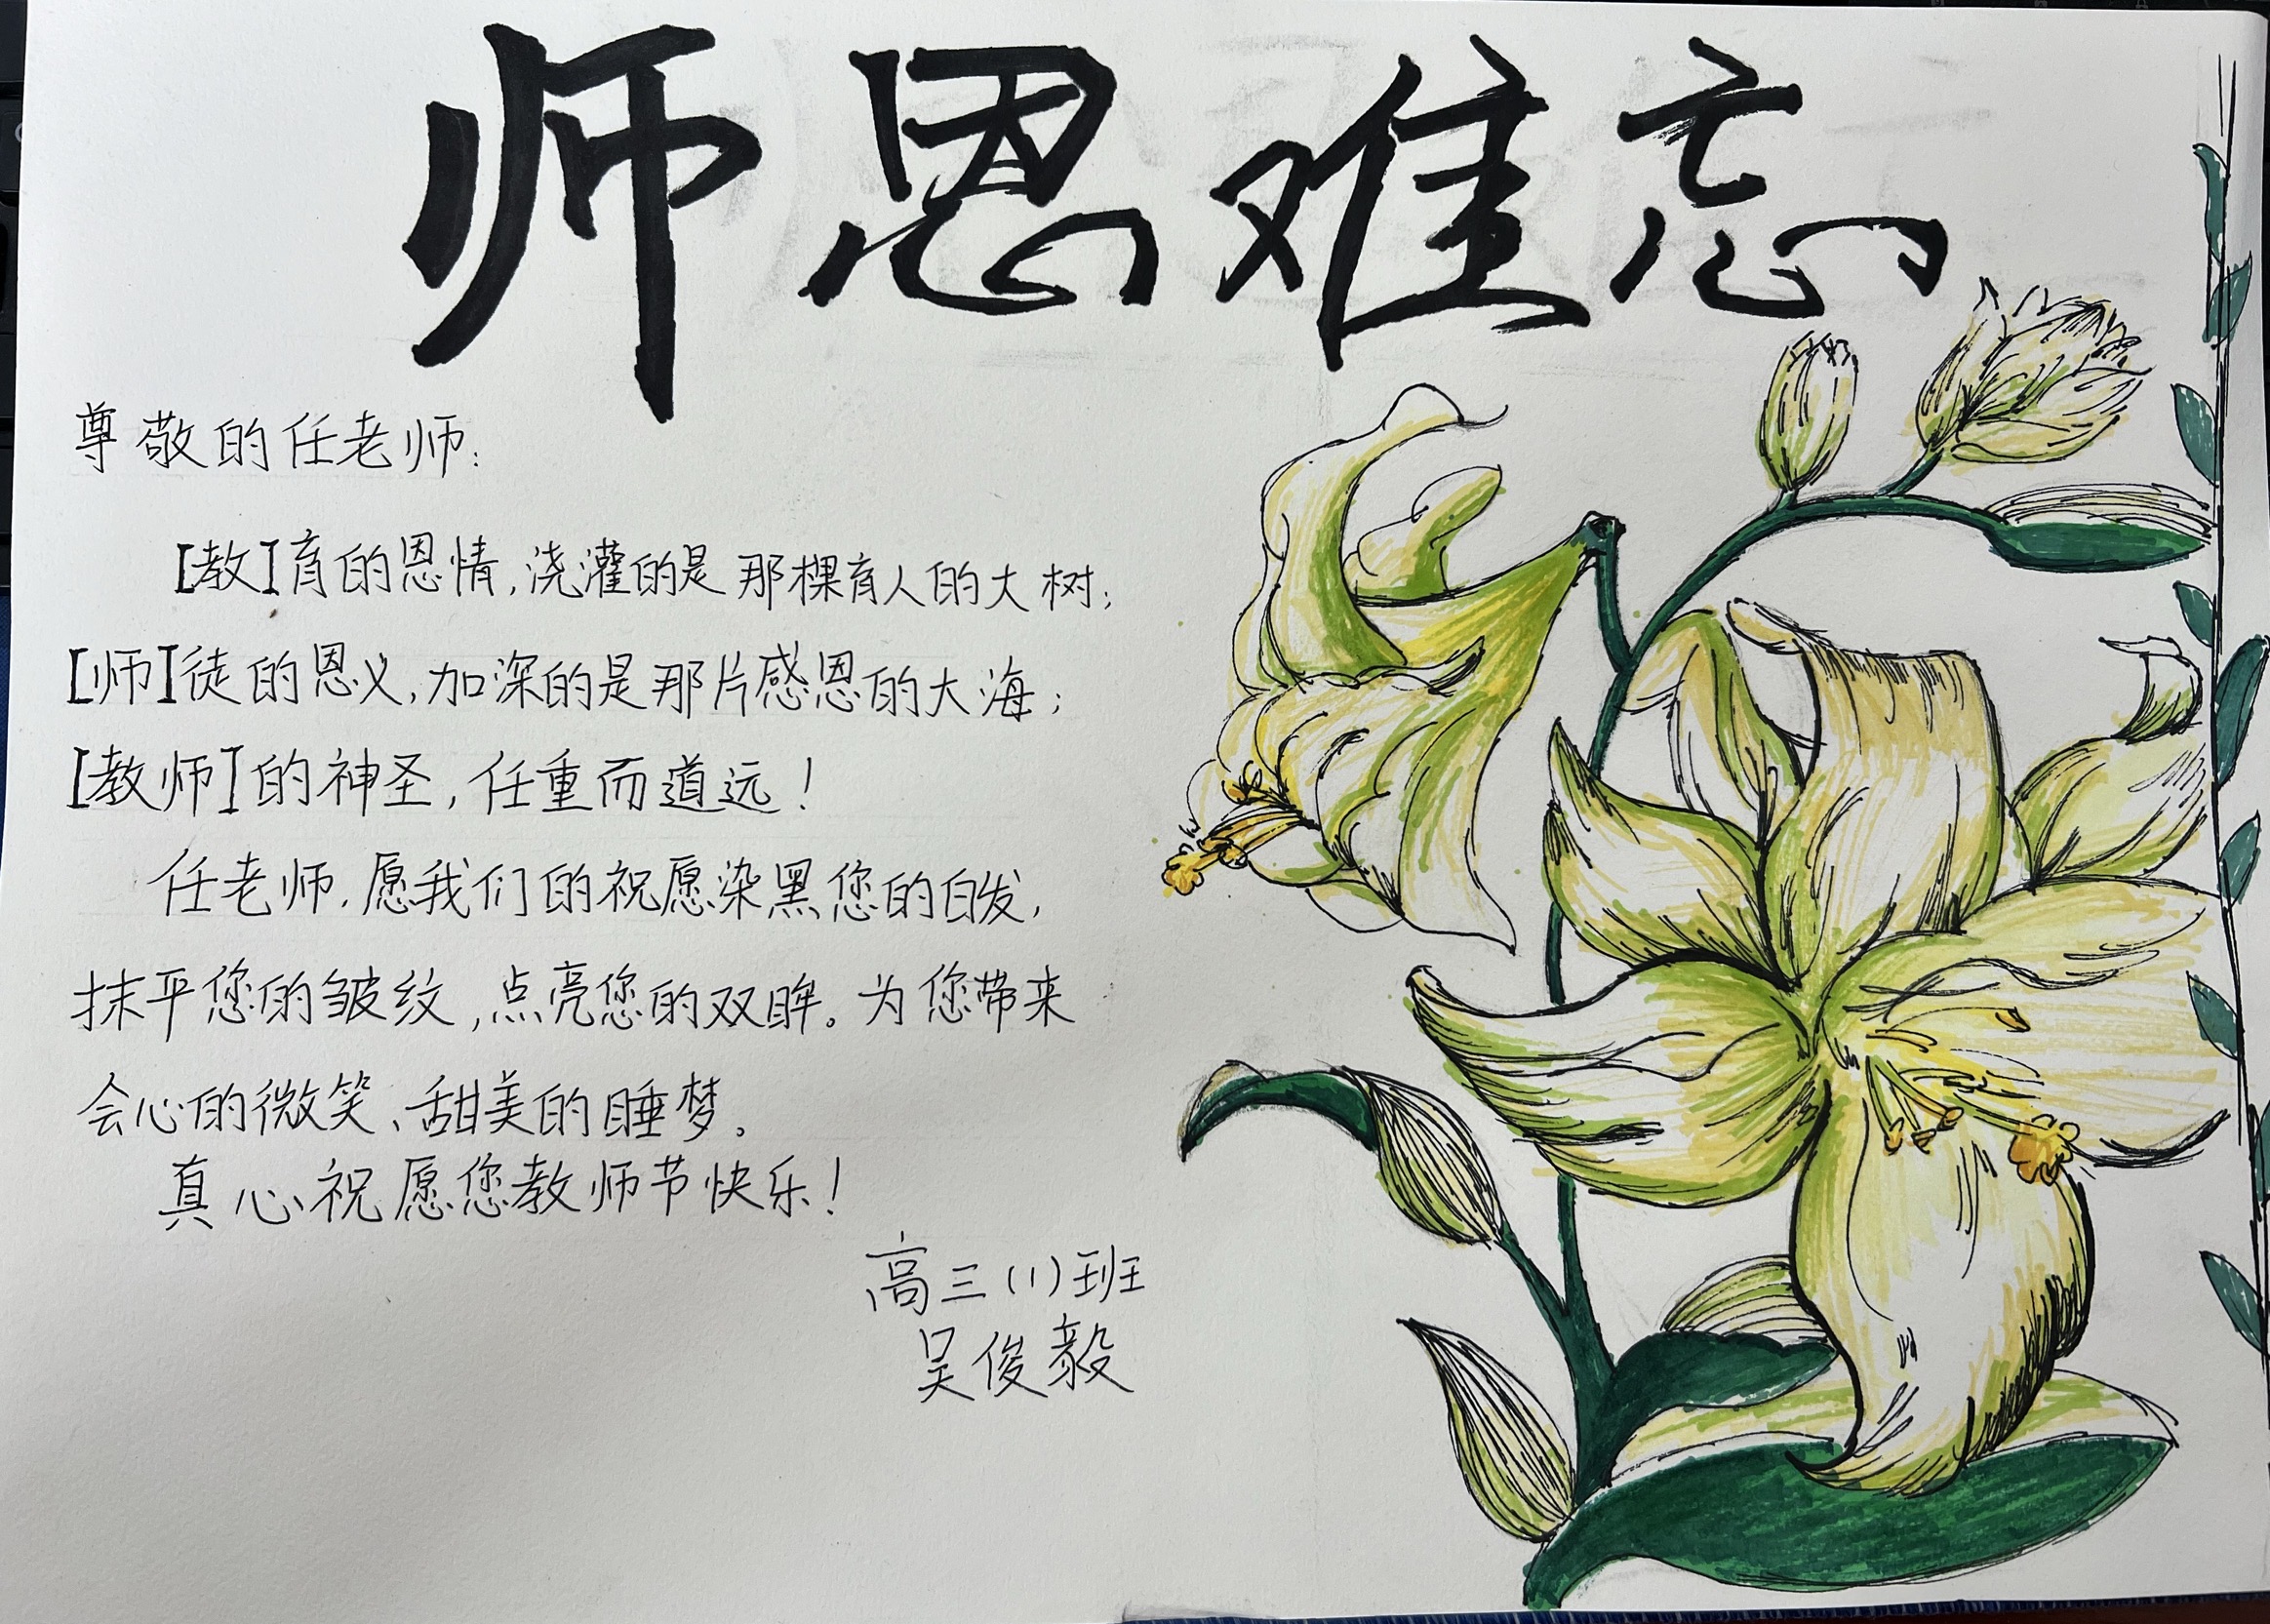 师恩难忘
尊敬的任老师:
【教】育的恩情,浇灌的是那棵育人的大树;
【师】徒的恩义,加深的是那片感恩的大海;
【教师】的神圣,任重而道远!
任老师.愿我们的祝愿染黑您的白发,
抹平您的皱纹,点亮您的双眸。为您带来
会心的微笑、甜美的睡梦。
真心祝愿您教师节快乐!
高三(1)班
吴俊毅